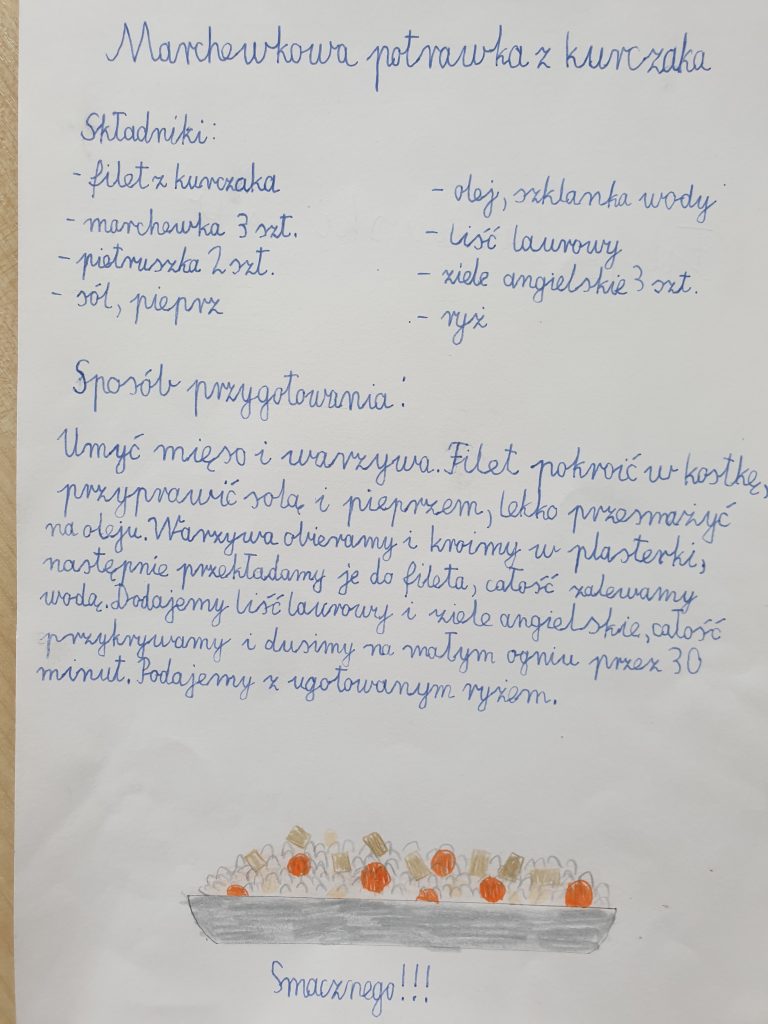 Marchewkowa potrawka z kurczaka
Składniki:
- filet z kurczaka
- marchewka 3 szt.
- pietruszka 2 szt.
- sól, pieprz
- olej, szklanka wody
- liść laurowy
- ziele angielskie 3 szt.
- ryż
Sposób przygotowania:
Umyć mięso i warzywa. Filet pokroić w kostkę,
przyprawić solą i pieprzem, lekko przesmażyć
na oleju. Warzywa obieramy i kroimy w plasterki,
następnie przekładamy je do fileta, całość zalewamy
wodą. Dodajemy liść laurowy i ziele angielskie, całość
przykrywamy i dusimy na małym ogniu przez 30
minut. Podajemy z ugotowanym ryżem.
Smacznego!!!